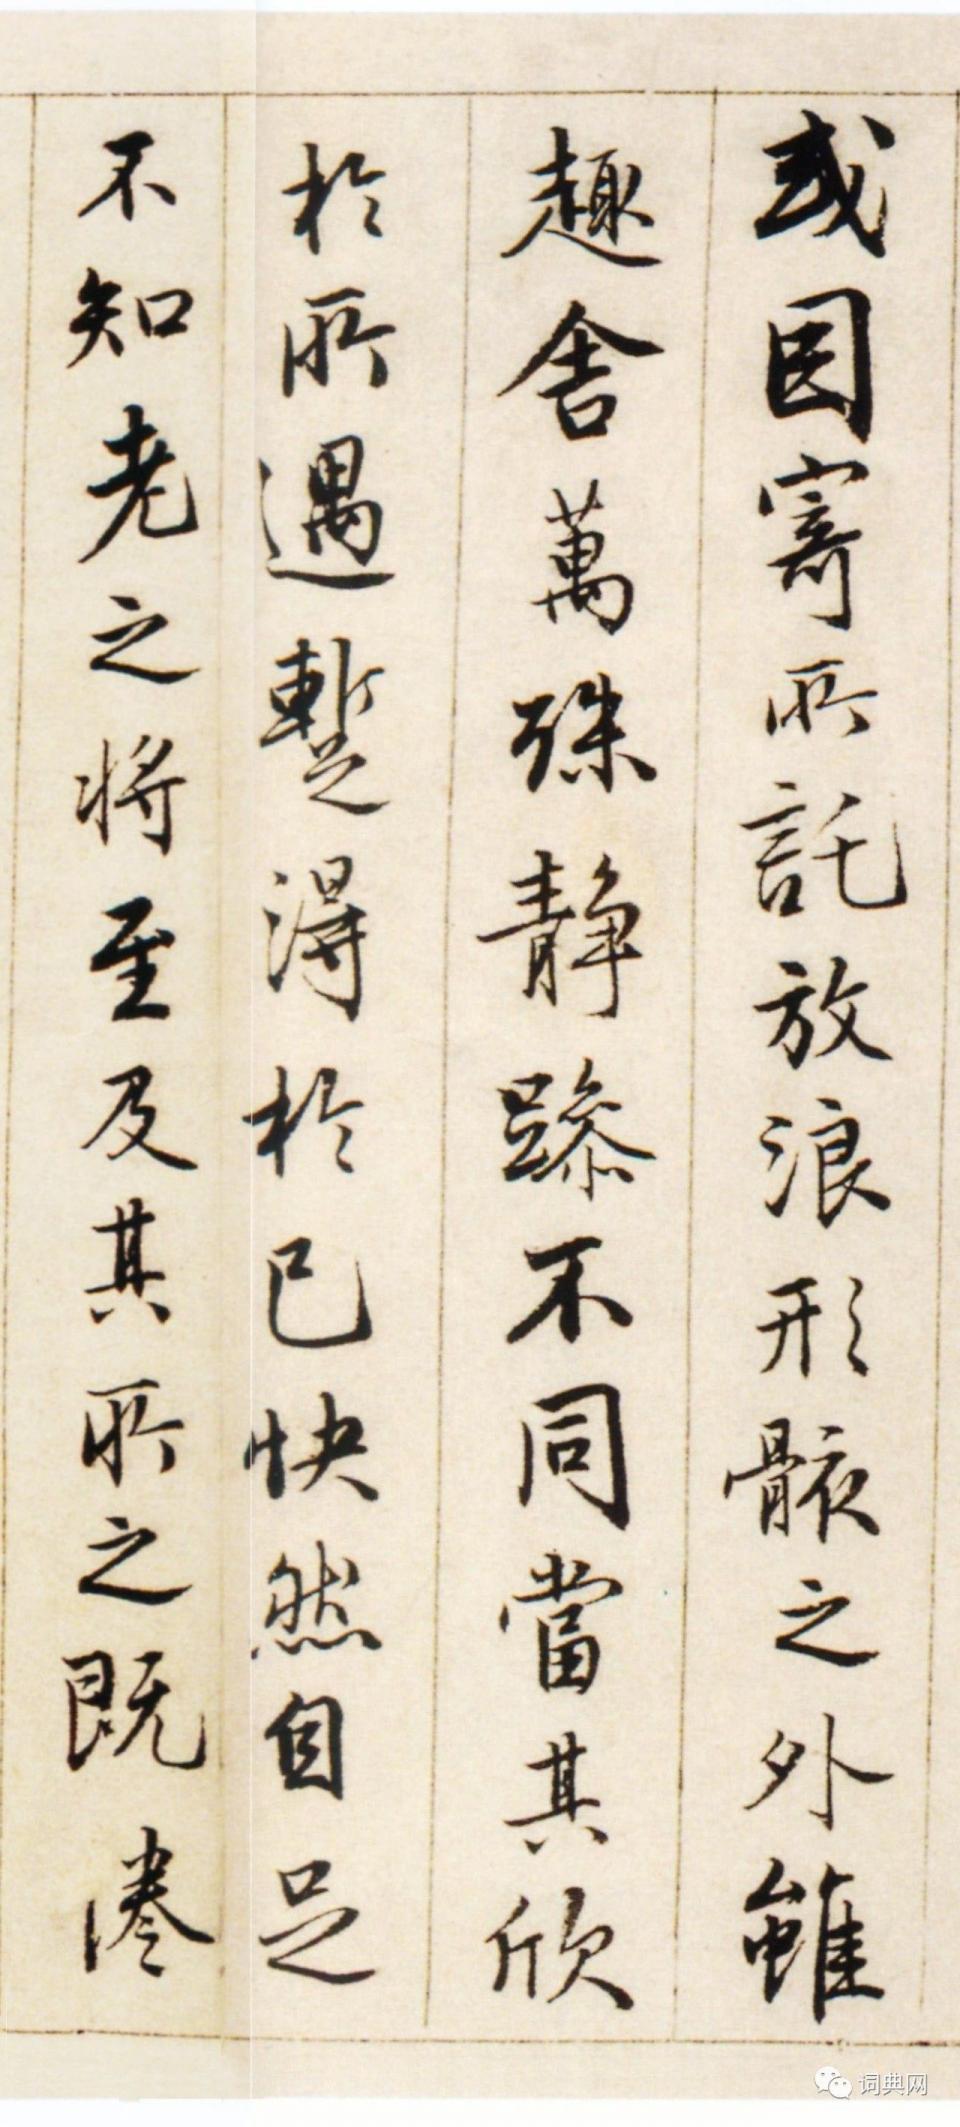 或因寄所託放浪形骸之外雖
趣舍萬殊静躁不同當其欣
於所遇暫得於己快然自足
不知老之將至及其所之既惓
词典网